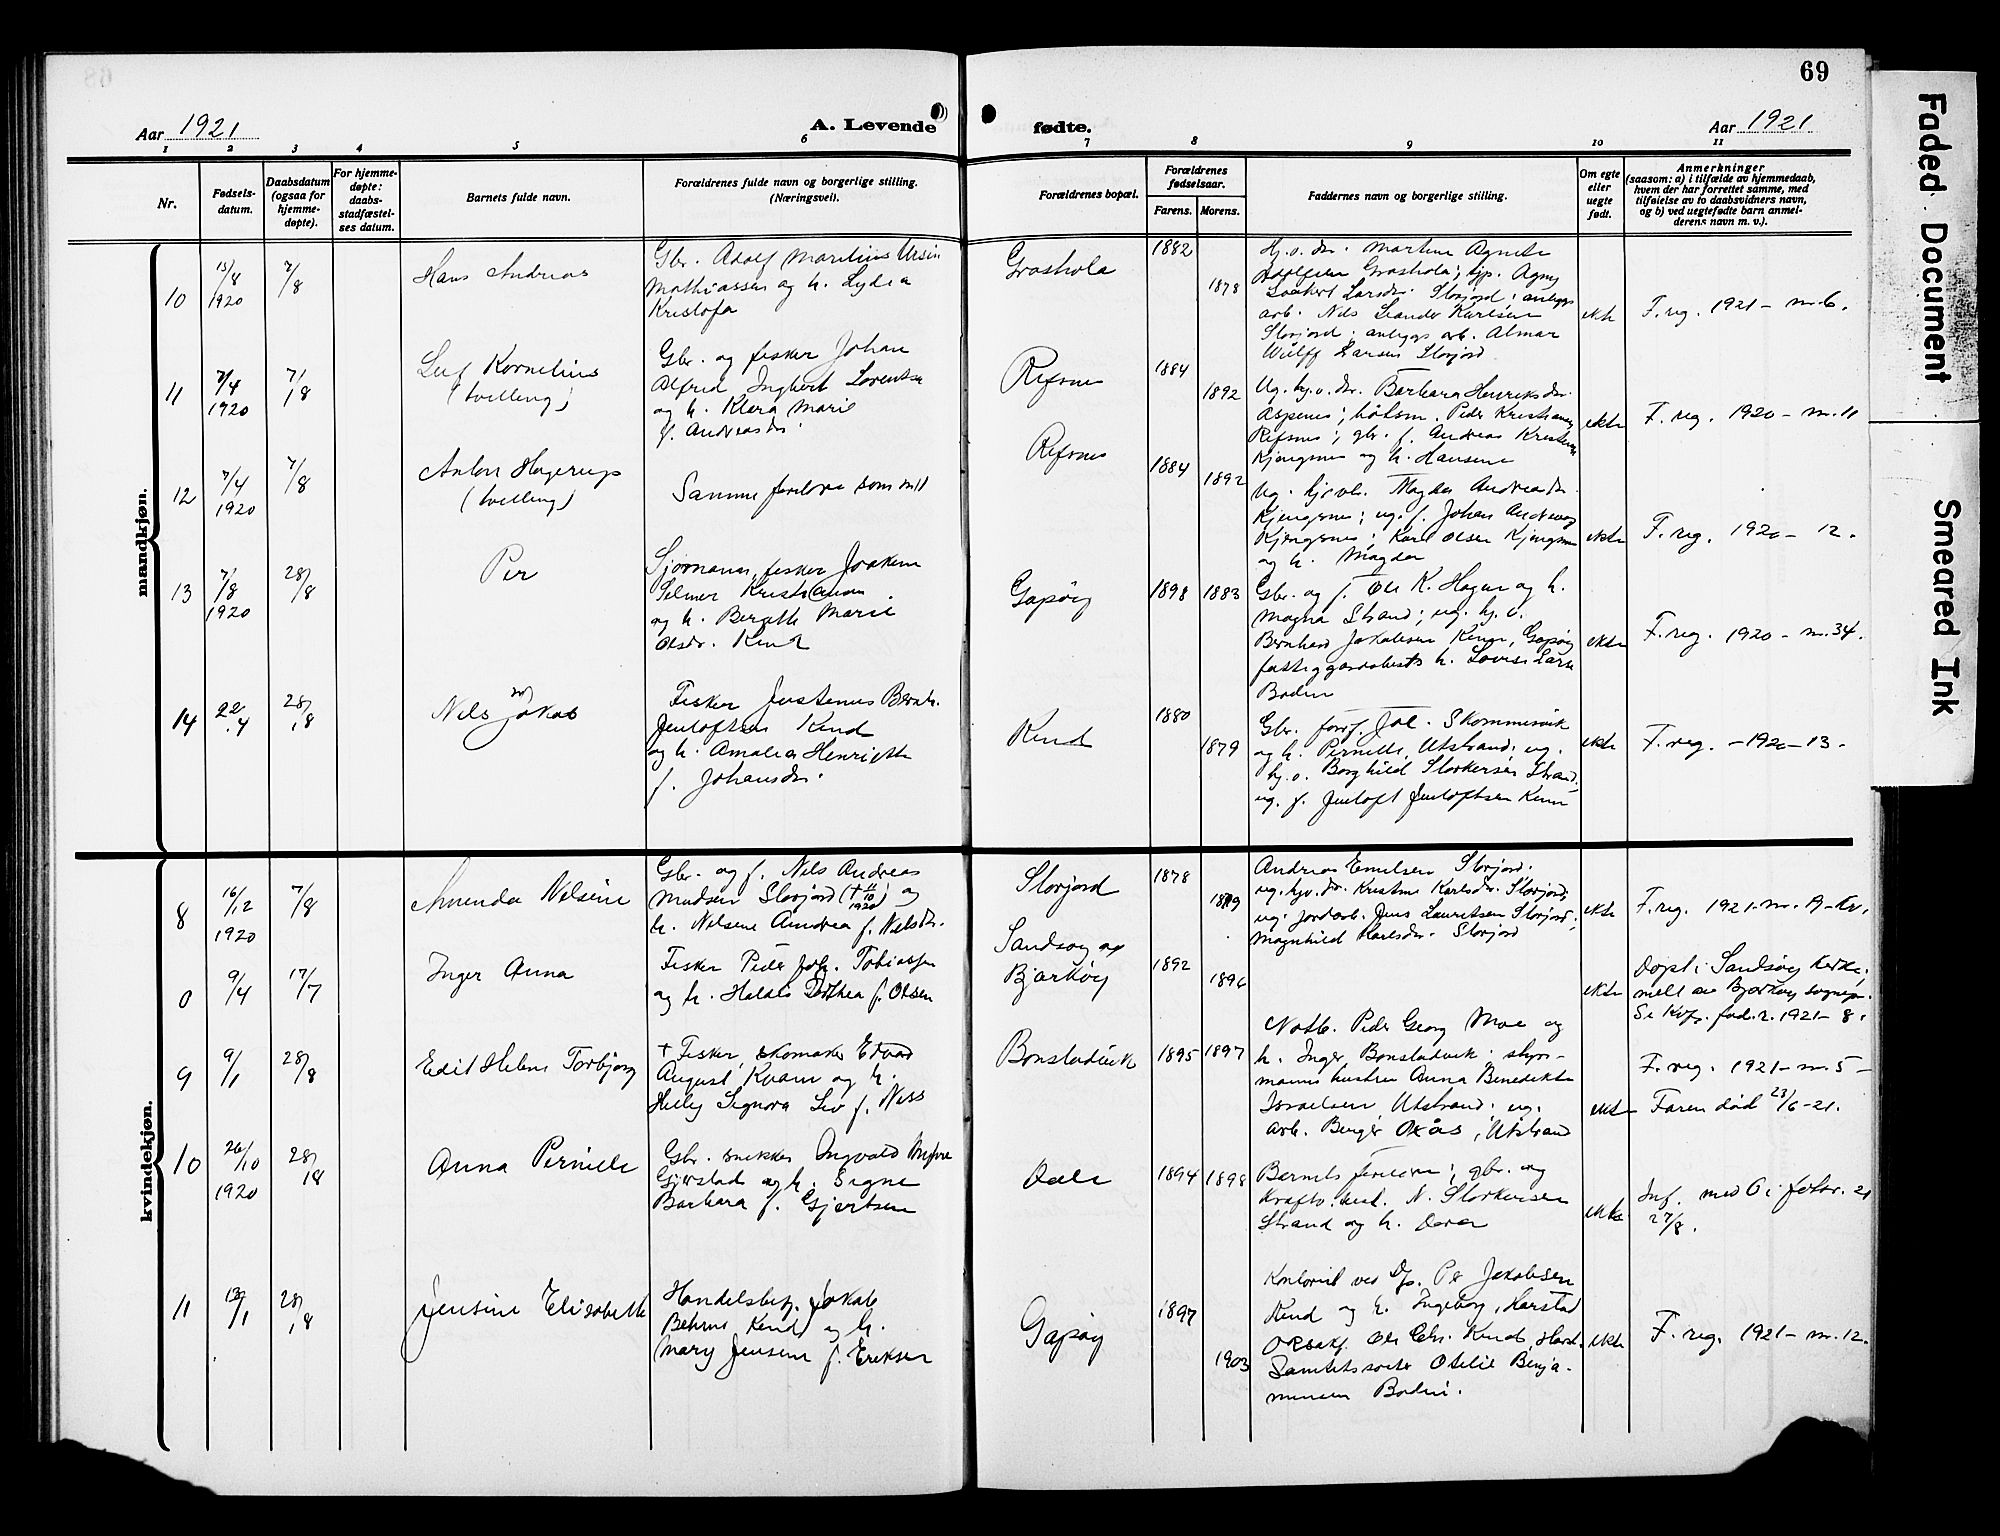 69
Aar 1921
A. Levende
fødte.
Aar 1921
1 2 3 4 5 6 7 8 9 10 11
Nr.
Fødsels-
datum.
Daabsdatum
(ogsaa for
hjemme-
døpte).
For hjemme-
døpte:
daabs-
stadfæstel-
ses datum.
Barnets fulde navn.
Forældrenes fulde navn og borgerlige stilling.
(Næringsvei).
Forældrenes bopæl.
Forældrenes
fødselsaar.
Farens. Morens.
Faddernes navn og borgerlige stilling.
Om egte
eller
uegte
født.
Anmerkninger
(saasom: a) i tilfælde av hjemmedaab,
hvem der har forrettet samme, med
tilføielse av to daabsvidners navn,
og b) ved uegtefødte barn anmel-
derens navn m. v.).
mandkjøn.
10
15/8
1920
7/8
Hans Andreas
Gbr. Adolf Marelius Ursin
Mathiassen og h. Lydia
Kristofa
Grashola
1882
1878
Hj.v. dr. Martine Agnete
Adolfsen Grashola; hjp. Agny
Larsdr. Storjord; anlægs
arb. Nils Leander Karlsen
Storjord; anlægs arb. Almar
Wulff Larsen Storjord
ekte
F. reg. 1921 - nr. 6.
11
7/4
1920
7/8
Leif Kornelius
(tvilling)
Gbr. og fisker Johan
Alfred Ingbert Lorentsen
og h. Klara Marie
f. Andreasdr.
Refsnes
1884
1892
Ug. hj.v. dr. Barbara Henriksdr.
Aspenes; båtsm. Peder Kristiansen
Refsnes; gbr. f. Andreas Kristensen
Kjengsnes og h. Hansine
ekte
F. reg. 1920 - nr. 11
12
7/4
1920
7/8
Anton Hagerup
(tvilling)
Samme foreldre som nr 11
Refsnes
1884
1892
Ug. hjevh. Magda Andreasdr.
Kjengsnes; ug. f. Johan Andreas
Kjengsnes; Karl Olsen Kjengsnes
og h. Magda
ekte
F. reg. 1920 - 12.
13
7/8
1920
28/8
Per
Sjømann, fisker Joakim
Selmer Kristiansen
og h. Bergith Marie
Olsdr. Kind
Gapøy
1898
1883
Gbr. og f. Ole K. Hagen og h.
Magna Strand; ug. hj.v.
Bernhard Jakobsen Kinn, Gapøy
h. Lovise Larsen
Bodin
ekte
F. reg. 1920 - nr. 34.
14
22/4
28/8
Nils Jakob
Fisker Justenus Bernh.
Jentoftsen Kind
og h. Amalie Henriette
f. Johansdr.
Kind
1880
1879
Gbr. forp. Joh. Skommesvik
og h. Pernille, Utstrand; ug.
hj.v. Borghild Storkersen Strand
ug. f. Jentoft Jentoftsen Kinn
ekte
F. reg. - 1920 - 13.
kvindekjøn.
8
16/12
1920
7/8
Amanda Nilsine
Gbr. og f. Nils Andreas
Madsen Storjord († 11/10 1920) og
h. Nilsine Amdrea f. Nilsdr.
Storjord
1878
1879
Andreas Emilsen Storjord.
ug. hjv. dr. Kristine Karlsdr. Storjord;
ug. jordarb. Jens Lauritsen Storjord;
Magnhild Karlsdr. Storjord
ekte
F. reg. 1921 - nr. 19 - kv.
0
9/4
17/7
Inger Anna
Fisker Peder Joh. Tobiassen
og h. Haldis Dorthea f. Olsen
Sandsøy og
Bjarkøy
1892
1896
ekte
Døpt i Sandsøy kirke;
meldt av Bjarkøy sognepr.
Se Kvf. fød. r. 1921 - 8.
9
9/1
28/8
Edit Helene Torbjørg
† Fisker, skomaker Edvard
August Kvam og h.
Helly Signora Liv f. Ness
Bonstadvik
1895
1897
Notb. Peder Georg Moe og
h. Inger, Bonstadvik; styr-
manns hustru Anna Benedikte
Israelsen, Utstrand; ug.
arb. Berger Oxås, Utstrand
ekte
F. reg. 1921 - nr. 5 -
Faren død 23/6 - 21.
10
26/10
1920
28/8
Anna Pernille
Gbr. snekker Ingvald
og h. Signe
Barbara f. Gjertsen
Dale
1894
1898
Barnets foreldre; gbr. og
N. Storkersen
Strand og h. Dorea
ekte
Inf. med i febr. 21
27/8.
11
13/1
28/8
Jensine Elisabeth
Handelsbetj. Jakob
Behrns Kind og h.
Mary Jensine f. Eriksen
Gapøy
1897
1903
Kontorist ved Ds. Pr. Jakobsen
Kind og h. Ingeborg, Harstad
Ole Chr. Kind, Harst.
Otelie Benja-
minsen Bodin.
ekte
F. reg. 1921 - nr. 12.
Faded Document
Smeared Ink